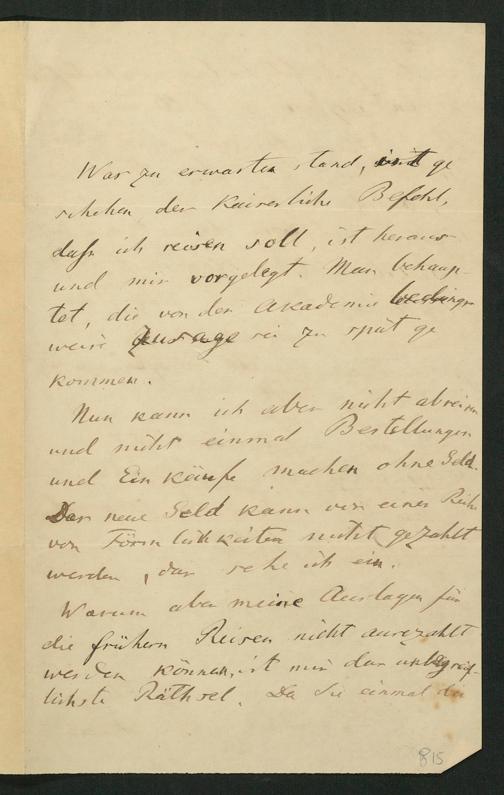 War zu erwarten stand, ist ge
schehen, der Kaiserliche Befehl,
dass ich reisen soll, ist heraus
und mir vorgelegt. Man behaup-
tet, die von der Akademie bedings
weise Zusage sei zu spät ge
kommen.
Nun kann ich aber nicht abreisen
und nicht einmal Bestellungen
und Einkäufe machen ohne Geld.
Das neue Geld kann vor einer Reihe
von Förmlichkeiten nicht gezahlt
werden, das sehe ich ein.
Warum aber meine Auslagen für
die frühern Reisen nicht ausezahlt
werden können, ist mir das unbegreif-
lichste Räthsel. Da Sie einmal die
815